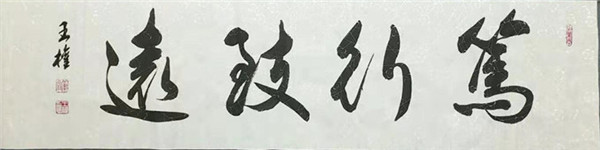 篤行致遠
王權